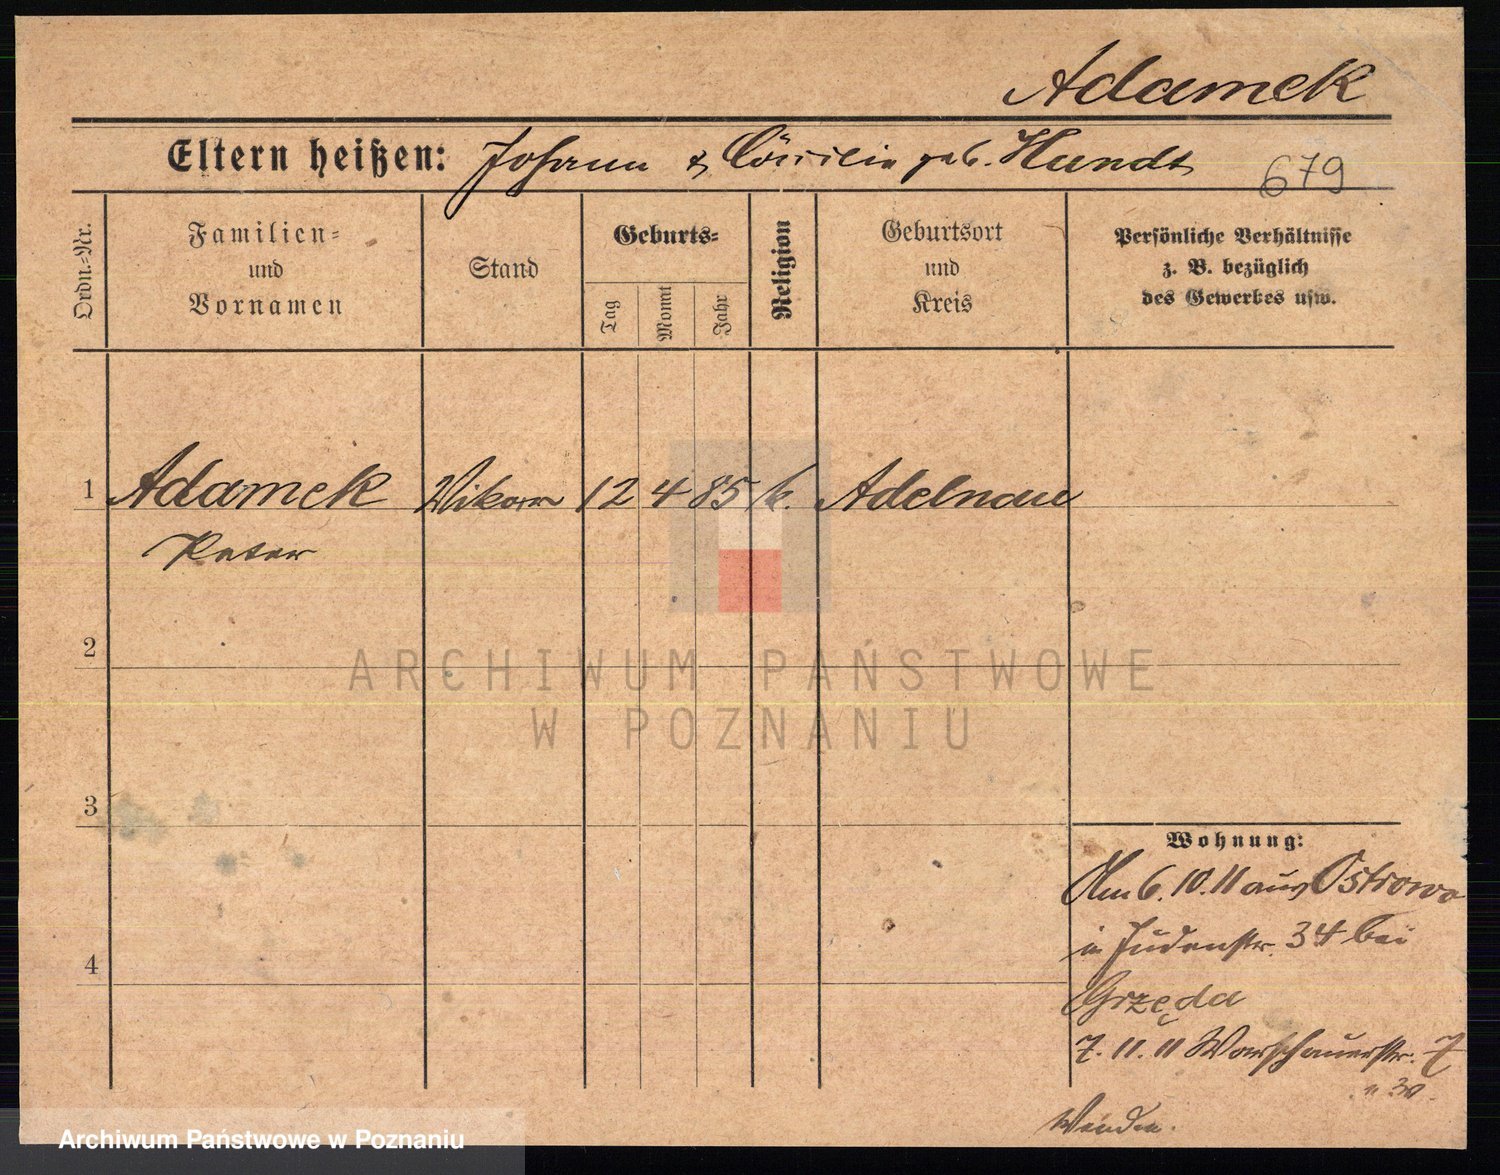 Adamek
Eltern heißen: Johann & Cäcilie geb. Hundt
679
Ordn.-Nr.
Familien- und Vornamen
Stand
Geburts-
Tag
Monat
Jahr
Religion
Geburtsort und Kreis
Persönliche Verhältnisse
z. B. bezüglich
des Gewerbes usw.
1 Adamek Vikar 12 4 85 k. Adelnau
Peter
2
3
4
Wohnung:
Am 6.10.11 aus Ostrowo
in Judenstr. 34 bei
Grzęda
7.11.11 Warschauerstr. 7
Wenden.
ARCHIWUM PAŃSTWOWE
W POZNANIU
Archiwum Państwowe w Poznaniu